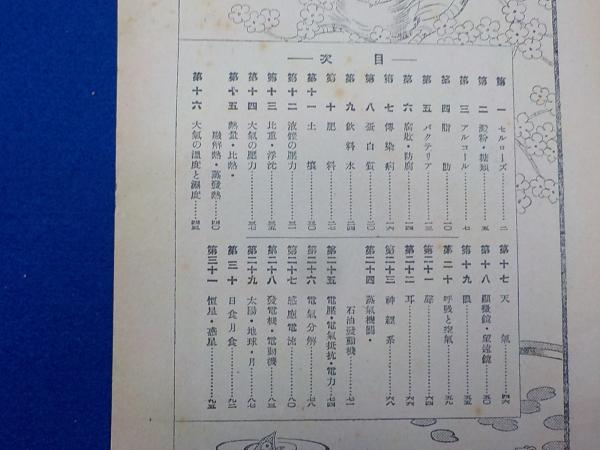 目次
第一 セルローズ………二
第二 澱粉・糖類………五
第三 アルコール………七
第四 脂肪………一〇
第五 バクテリア………一三
第六 腐敗・防腐………一四
第七 傳染病………一六
第八 蛋白質………二〇
第九 飲料水………二四
第十 肥料………二七
第十一 土壤………三〇
第十二 液體の壓力………三一
第十三 比重・浮沈………三五
第十四 大氣の壓力………三七
第十五 熱量・比熱・
融解熱・蒸發熱………四〇
第十六 大氣の溫度と濕度………四三
第十七 天氣………四六
第十八 顯微鏡・望遠鏡………五〇
第十九 眼………五六
第二十 呼吸と空氣………五九
第二十一 聲………六四
第二十二 耳………六六
第二十三 神經系………六八
第二十四 蒸氣機關・
石油發動機………七一
第二十五 電壓・電氣抵抗・電力………七四
第二十六 電氣分解………七八
第二十七 感應電流………八〇
第二十八 發電機・電動機………八三
第二十九 太陽・地球・月………八七
第三十 日食月食………九二
第三十一 恒星・惑星………九五